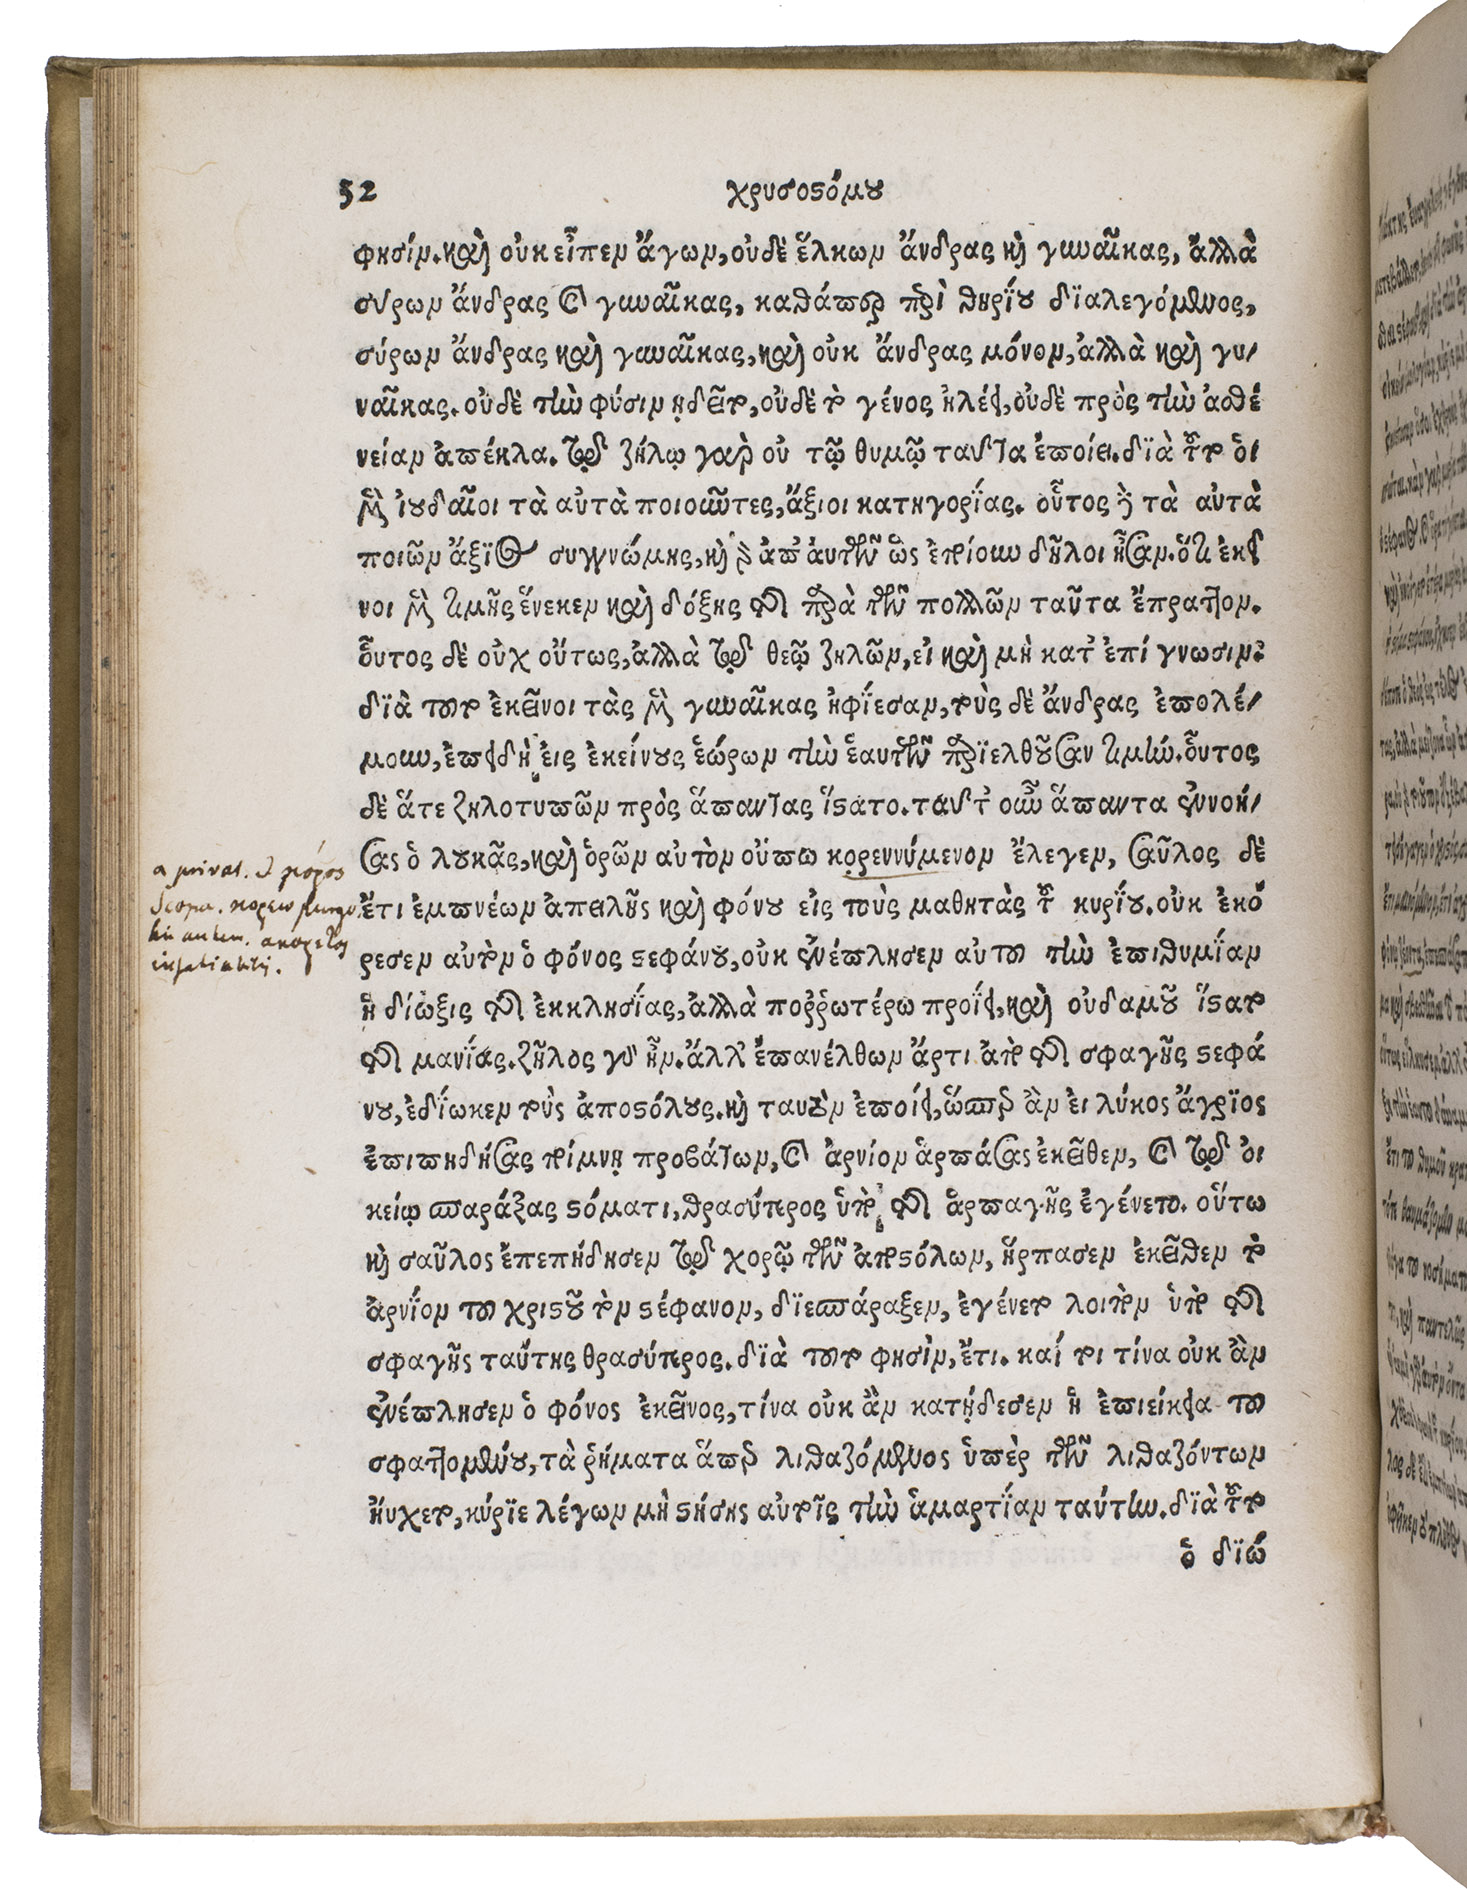 52 χρυσοστόμου
φησίν. καὶ οὐκ εἶπεν ἄγων, οὐδὲ ἕλκων ἄνδρας καὶ γυναῖκας, ἀλλὰ
σύρων ἄνδρας καὶ γυναῖκας, καθάπερ περὶ θηρίου διαλεγόμενος,
σύρων ἄνδρας καὶ γυναῖκας, καὶ οὐκ ἄνδρας μόνον, ἀλλὰ καὶ γυ/
ναῖκας. οὐδὲ τὴν φύσιν ᾐδεῖτο, οὐδὲ τὸ γένος ἠλέει, οὐδὲ πρὸς τὴν ἀσθέ
νείαν ἀπέκλα. τῷ ζήλῳ γὰρ οὐ τῷ θυμῷ ταῦτα ἐποίει. διὰ τοῦτο ὁι
μὲν ἰουδαῖοι τὰ αὐτὰ ποιοῦντες, ἄξιοι κατηγορίας. οὗτος δὲ τὰ αὐτὰ
ποιῶν ἄξιος συγγνώμης, καὶ γὰρ ἀπ' ἀυτῶν ὧς ἐποίουν δῆλοι ἦσαν. ὅτι ἐκεῖ
νοι μὲν τιμῆς ἕνεκεν καὶ δόξης τῆς παρὰ τῶν πολλῶν ταῦτα ἔπραττον.
ὅυτος δὲ οὐχ οὕτως, ἀλλὰ τῷ θεῷ ζηλῶν, εἰ καὶ μὴ κατ' ἐπί γνωσιν.
διὰ τοῦτο ἐκεῖνοι τὰς μὲν γυναῖκας ἠφίεσαν, τοὺς δὲ ἄνδρας ἐπολέ/
μουν, ἐπειδὴ εἰς ἐκείνους ἑώρων τὴν ἑαυτῶν περιελθοῦσαν τιμήν. ὅυτος
δὲ ἅτε ζηλοτυπῶν πρὸς ἅπαντας ἵστατο. ταῦτ' οὖν ἅπαντα ἐννοή/
σας ὁ λουκᾶς, καὶ ὁρῶν αὐτὸν οὔπω κορεννύμενον ἔλεγεν, Σαῦλος δὲ
ἔτι ἐμπνέων ἀπειλῆς καὶ φόνου εἰς τοὺς μαθητὰς τοῦ κυρίου. οὐκ ἐκό
ρεσεν αὐτὸν ὁ φόνος στεφάνου, οὐκ ἐνέπλησεν αὐτοῦ τὴν ἐπιθυμίαν
ἡ δίωξις τῆς ἐκκλησίας, ἀλλὰ ποῤῥωτέρω προΐει, καὶ οὐδαμοῦ ἵστατο
τῆς μανίας. ζῆλος γὰρ ἦν. ἀλλ' ἐπανέλθων ἄρτι ἀπὸ τῆς σφαγῆς στεφά
νου, ἐδίωκεν τοὺς ἀποστόλους. καὶ ταυτὸν ἐποίει, ὥσπερ ἂν ει λύκος ἄγριος
ἐπιπηδήσας ποίμνῃ προβάτων, καὶ ἀρνίον ἁρπάσας ἐκεῖθεν, καὶ τῷ ὀι
κείῳ σπαράξας στόματι, θρασύτερος ὑπὸ τῆς ἁρπαγῆς ἐγένετο. οὕτω
καὶ σαῦλος ἐπεπήδησεν τῷ χορῷ τῶν ἀποστόλων, ἥρπασεν ἐκεῖθεν τὸ
ἀρνίον τοῦ χριστοῦ τὸν στέφανον, διεσπάραξεν, ἐγένετο λοιπὸν ὑπὸ τῆς
σφαγῆς ταύτης θρασύτερος. διὰ τοῦτο φησὶν, ἔτι. καί τοι τίνα οὐκ ἂν
ἐνέπλησεν ὁ φόνος ἐκεῖνος, τίνα οὐκ ἂν κατῄδεσεν ἡ ἐπιείκεια τοῦ
σφαττομένου, τὰ ῥήματα ἅπερ λιθαζόμενος ὑπὲρ τῶν λιθαζόντων
ἤυχετο, κύριε λέγων μὴ στήσῃς αὐτοῖς τὴν ἁμαρτίαν ταύτην. διὰ τοῦτο
ὁ διώ
a privat. & κόρος
scopa. κορεω purgo
ακορετος
insatiabilis.